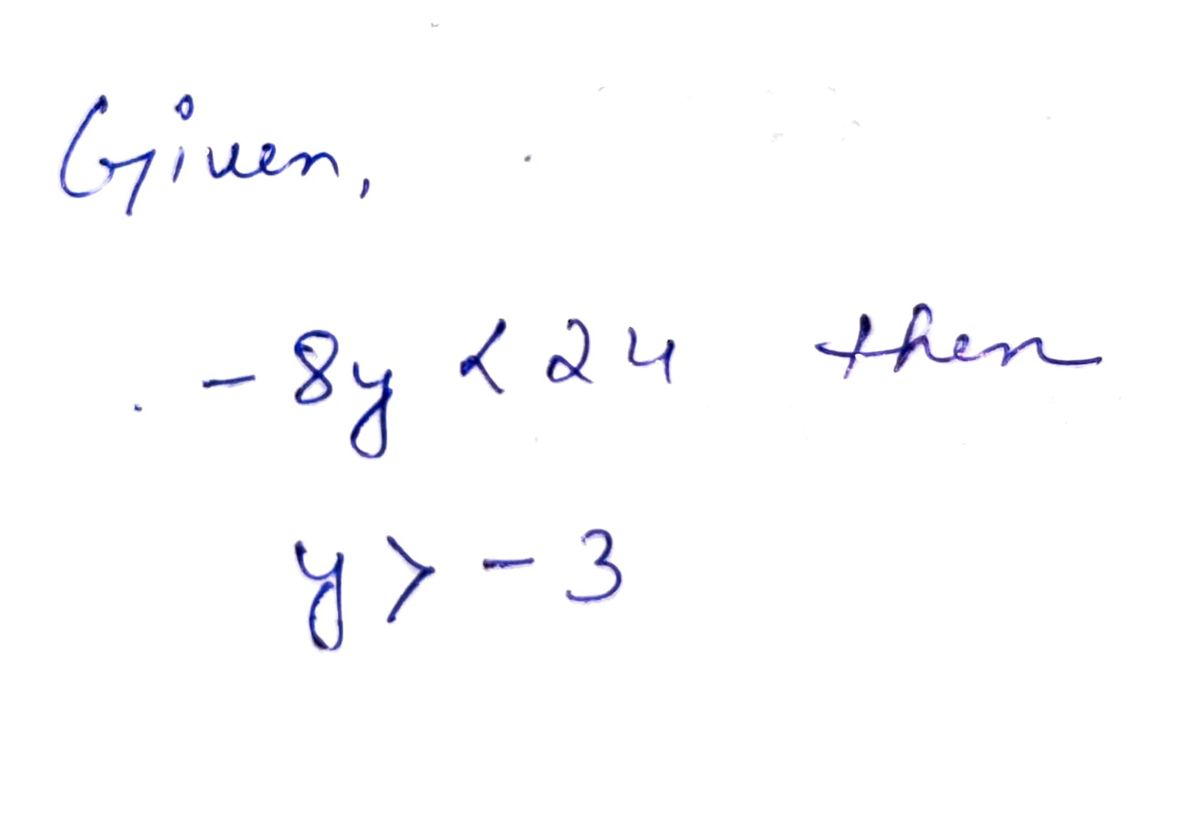 Given,
- 8y < 24 then
y > - 3